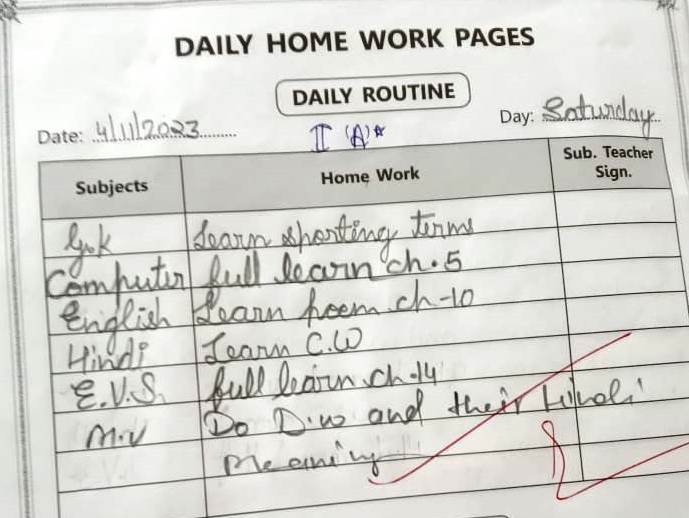 DAILY HOME WORK PAGES
DAILY ROUTINE
Date: 4/11/2023 Day: Saturday
II 'A'
Subjects Home Work Sub. Teacher Sign.
G.K Learn sporting terms
Computer full learn ch.5
English Learn poem ch-10
Hindi Learn C.W
E.V.S. full learn ch-14
M.V Do D.W and their Hindi
Meaning